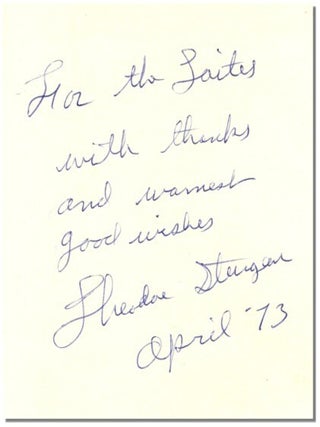 For the Loites
with thanks
and warmest
good wishes
Theodore Sturgeon
April '73